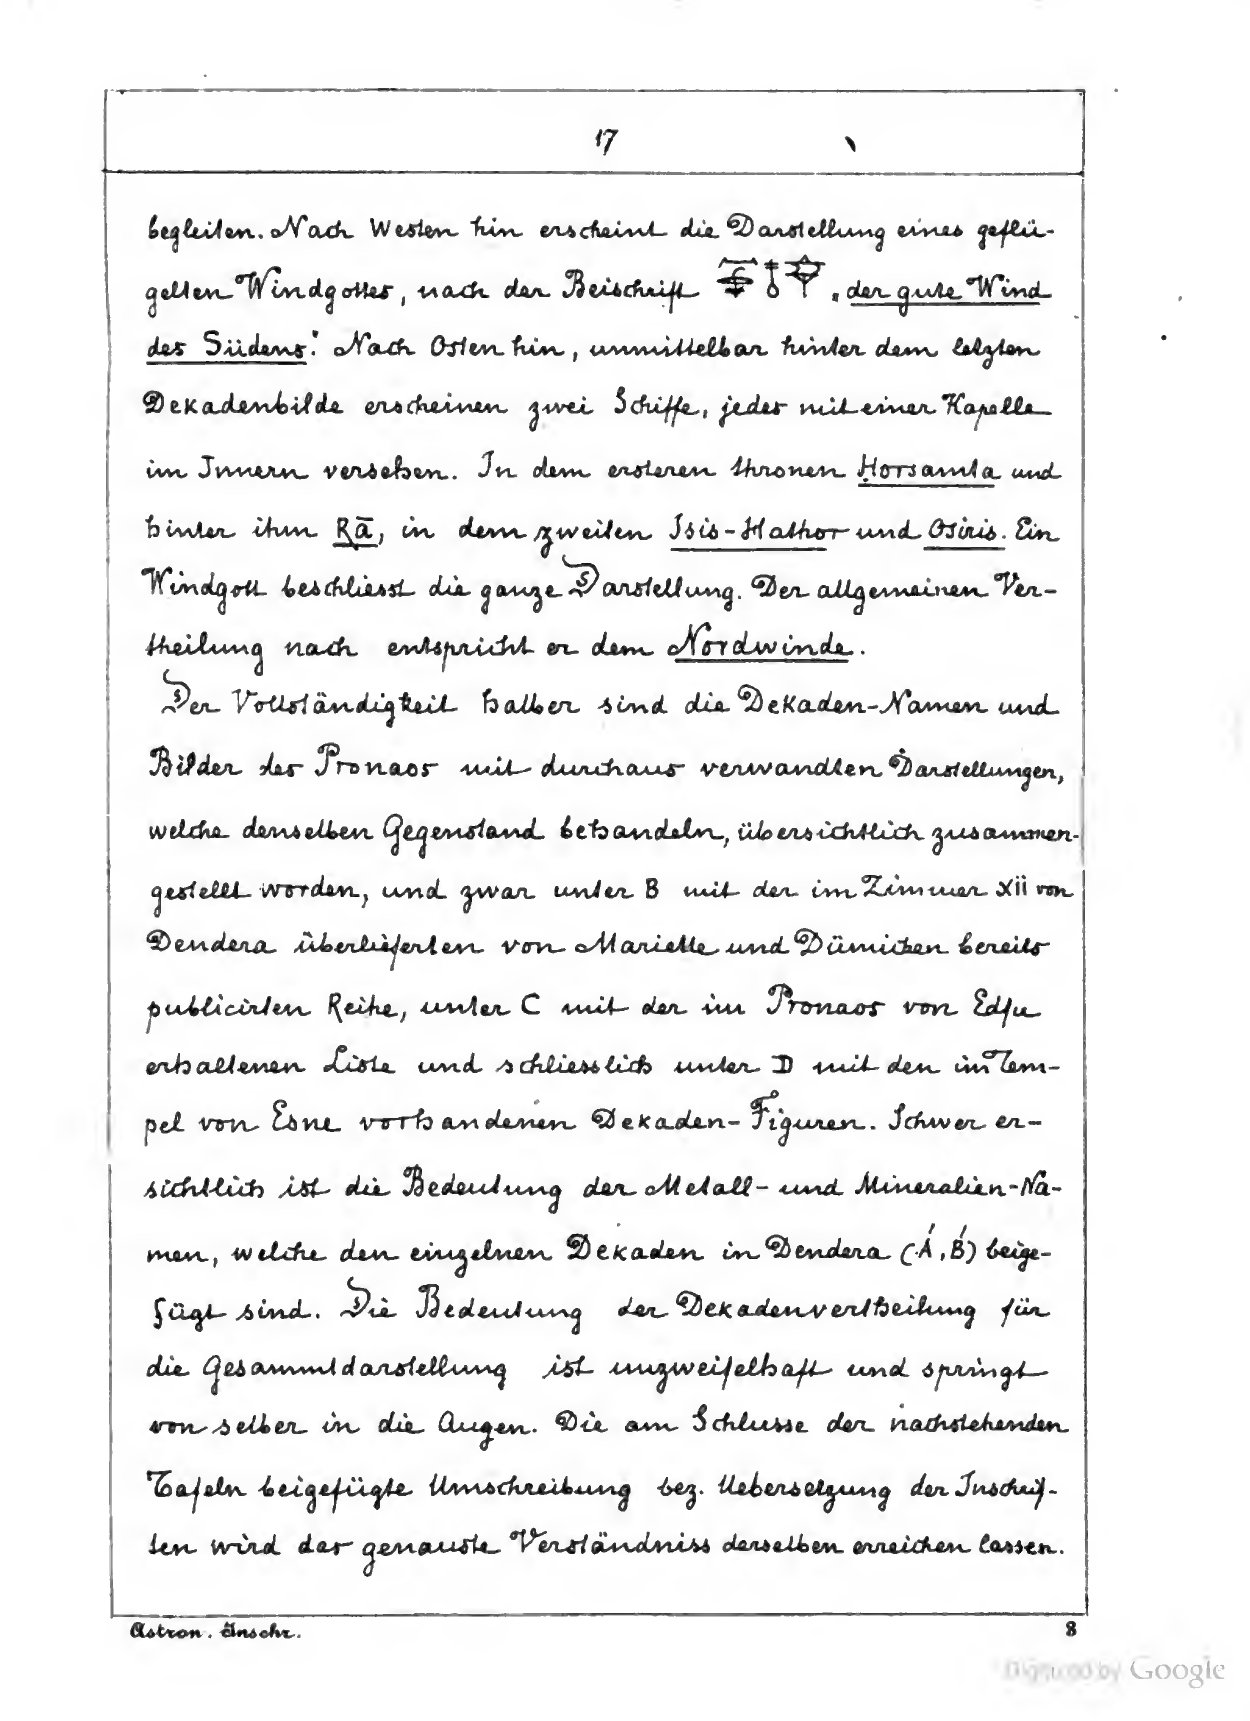 17
begleiten. Nach Westen hin erscheint die Darstellung eines geflü-
gelten Windgottes, nach der Beischrift „der gute Wind
des Südens". Nach Osten hin, unmittelbar hinter dem letzten
Dekadenbilde erscheinen zwei Schiffe, jedes mit einer Kapelle
im Innern versehen. In dem ersteren thronen Horsamta und
hinter ihm Rā, in dem zweiten Isis-Hathor und Osiris. Ein
Windgott beschliesst die ganze Darstellung. Der allgemeinen Ver-
theilung nach entspricht er dem Nordwinde.
Der Vollständigkeit halber sind die Dekaden-Namen und
Bilder des Pronaos mit durchaus verwandten Darstellungen,
welche denselben Gegenstand behandeln, übersichtlich zusammen-
gestellt worden, und zwar unter B mit der im Zimmer XII von
Dendera überlieferten von Mariette und Dümichen bereits
publicirten Reihe, unter C mit der im Pronaos von Edfu
erhaltenen Liste und schliesslich unter D mit den im Tem-
pel von Esne vorhandenen Dekaden-Figuren. Schwer er-
sichtlich ist die Bedeutung der Metall- und Mineralien-Na-
men, welche den einzelnen Dekaden in Dendera (A', B') beige-
fügt sind. Die Bedeutung der Dekadenvertheilung für
die Gesammtdarstellung ist unzweifelhaft und springt
von selber in die Augen. Die am Schlusse der nachstehenden
Tafeln beigefügte Umschreibung bez. Uebersetzung der Inschrif-
ten wird das genauste Verständniss derselben erreichen lassen.
Astron. Inschr. 3
Digitized by Google